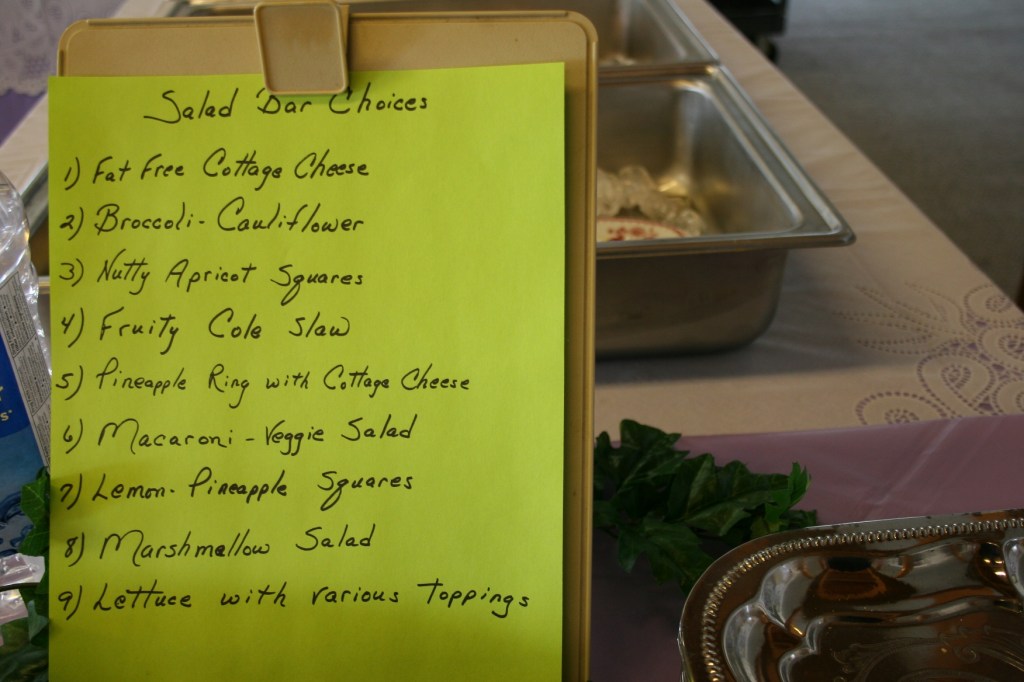 Salad Bar Choices
1) Fat Free Cottage Cheese
2) Broccoli - Cauliflower
3) Nutty Apricot Squares
4) Fruity Cole Slaw
5) Pineapple Ring with Cottage Cheese
6) Macaroni - Veggie Salad
7) Lemon - Pineapple Squares
8) Marshmallow Salad
9) Lettuce with various Toppings